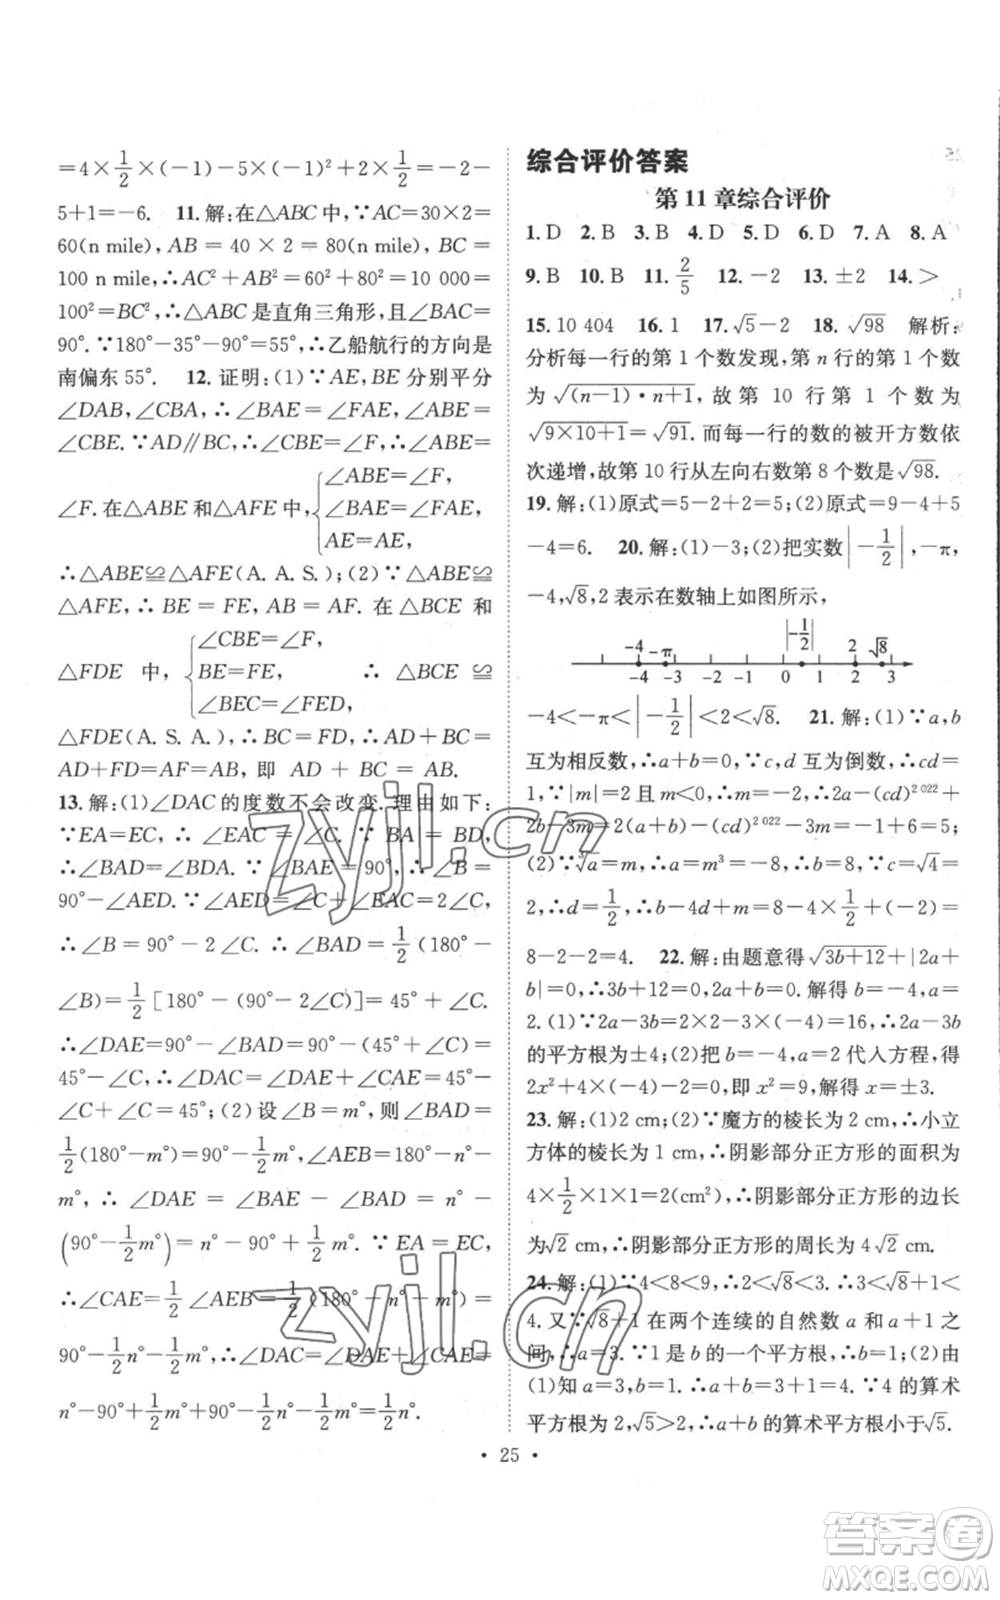 =4×1/2×(-1)-5×(-1)²+2×1/2=-2-
5+1=-6. 11.解:在△ABC中,∵AC=30×2=
60(n mile), AB = 40 × 2 = 80(n mile), BC =
100 n mile,∴AC²+AB²=60²+80²=10 000=
100²=BC²,∴△ABC是直角三角形,且∠BAC=
90°.∵180°-35°-90°=55°,∴乙船航行的方向是
南偏东55°. 12.证明:(1)∵AE,BE分别平分
∠DAB,∠CBA,∴∠BAE=∠FAE,∠ABE=
∠CBE.∵AD∥BC,∴∠CBE=∠F,∴∠ABE=
∠F.在△ABE和△AFE中,{∠ABE=∠F,
∠BAE=∠FAE,
AE=AE,
∴△ABE≌△AFE(A.A.S.);(2)∵△ABE≌
△AFE,∴BE=FE,AB=AF.在△BCE和
△FDE中,{∠CBE=∠F,
BE=FE,
∠BEC=∠FED,
∴△BCE≌
△FDE(A.S.A.),∴BC=FD,∴AD+BC=
AD+FD=AF=AB,即 AD+BC=AB.
13.解:(1)∠DAC的度数不会改变.理由如下:
∵EA=EC,∴∠EAC=∠C.∵BA=BD,
∴∠BAD=∠BDA.∵∠BAE=90°,∴∠B=
90°-∠AED.∵∠AED=∠C+∠EAC=2∠C,
∴∠B=90°-2∠C,∴∠BAD=1/2(180°-
∠B)=1/2[180°-(90°-2∠C)]=45°+∠C.
∴∠DAE=90°-∠BAD=90°-(45°+∠C)=
45°-∠C,∴∠DAC=∠DAE+∠CAE=45°-
∠C+∠C=45°;(2)设∠B=m°,则∠BAD=
1/2(180°-m°)=90°-1/2m°,∠AEB=180°-n°-
m°,∴∠DAE=∠BAE-∠BAD=n°-
(90°-1/2m°)=n°-90°+1/2m°.∵EA=EC,
∴∠CAE=1/2∠AEB=1/2(180°-n°-m°)=
90°-1/2n°-1/2m°,∴∠DAC=∠DAE+∠CAE=
n°-90°+1/2m°+90°-1/2n°-1/2m°=1/2n°.
综合评价答案
第11章综合评价
1.D 2.B 3.B 4.D 5.D 6.D 7.A 8.A
9.B 10.B 11.2/5 12.-2 13.±2 14.>
15.10 404 16.1 17.√5-2 18.√98 解析:
分析每一行的第1个数发现,第n行的第1个数
为√((n-1)·n+1),故第10行第1个数为
√(9×10+1)=√91.而每一行的数的被开方数依
次递增,故第10行从左向右数第8个数是√98.
19.解:(1)原式=5-2+2=5;(2)原式=9-4+5
-4=6. 20.解:(1)-3;(2)把实数|-1/2|,-π,
-4,√8,2表示在数轴上如图所示,
-4 -π |-1/2| 2 √8
-4 -3 -2 -1 0 1 2 3
-4<-π<|-1/2|<2<√8. 21.解:(1)∵a,b
互为相反数,∴a+b=0,∵c,d互为倒数,∴cd=
1,∵|m|=2且m<0,∴m=-2,∴2a-(cd)²⁰²²+
2b-3m=2(a+b)-(cd)²⁰²²-3m=-1+6=5;
(2)∵³√a=m=-2,∴a=m³=-8,∴b=8,∵c=√4=
2,∴d=1/2,∴a+b-cd+m=-8+8-2×1/2+(-2)=
8-2-2=4. 22.解:由题意得√(3b+12)+|2a+
b|=0,∴3b+12=0,2a+b=0.解得b=-4,a=
2.(1)∵2a-3b=2×2-3×(-4)=16,∴2a-3b
的平方根为±4;(2)把b=-4,a=2代人方程,得
2x²+4×(-4)-2=0,即x²=9,解得x=±3.
23.解:(1)2 cm;(2)∵魔方的棱长为2 cm,∴小立
方体的棱长为1 cm,∴阴影部分正方形的面积为
4×1/2×1×1=2(cm²),∴阴影部分正方形的边长
为√2 cm,∴阴影部分正方形的周长为4√2 cm.
24.解:(1)∵4<8<9,∴2<√8<3.∴3<√8+1<
4.又∵√8+1在两个连续的自然数a和a+1之
间,∴a=3.∵1是b的一个平方根,∴b=1;(2)由
(1)知a=3,b=1,∴a+b=3+1=4.∵4的算术
平方根为2,√5>2,∴a+b的算术平方根小于√5.
· 25 ·
zyjl.cn
zyjl.cn
答案圈
MXQE.COM